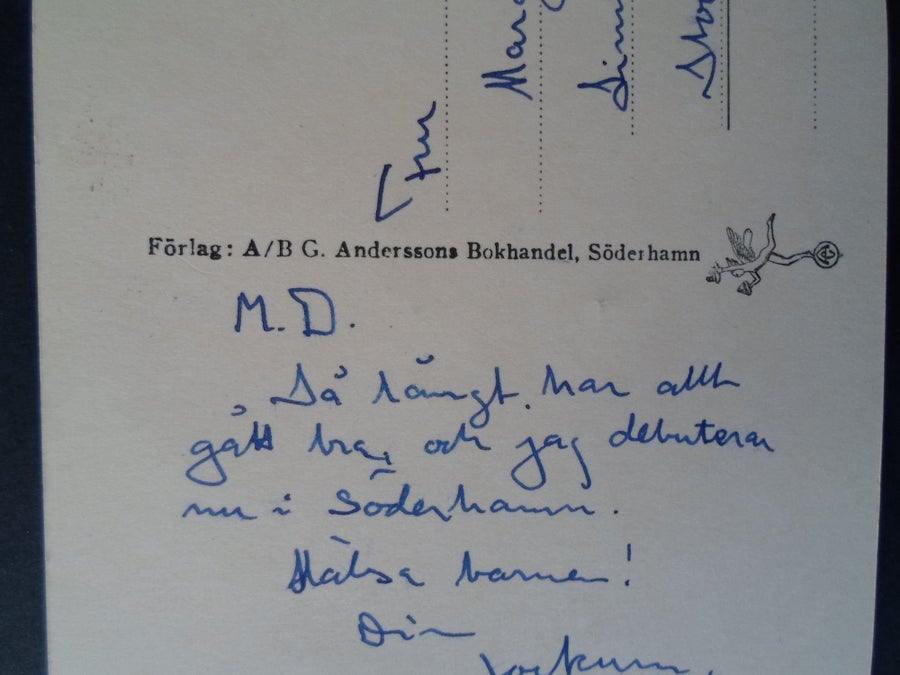 Fru
Förlag: A/B G. Anderssons Bokhandel, Söderhamn
M. D.
Så långt har allt
gått bra, och jag debuterar
nu i Söderhamn.
Hälsa barnen!
Din